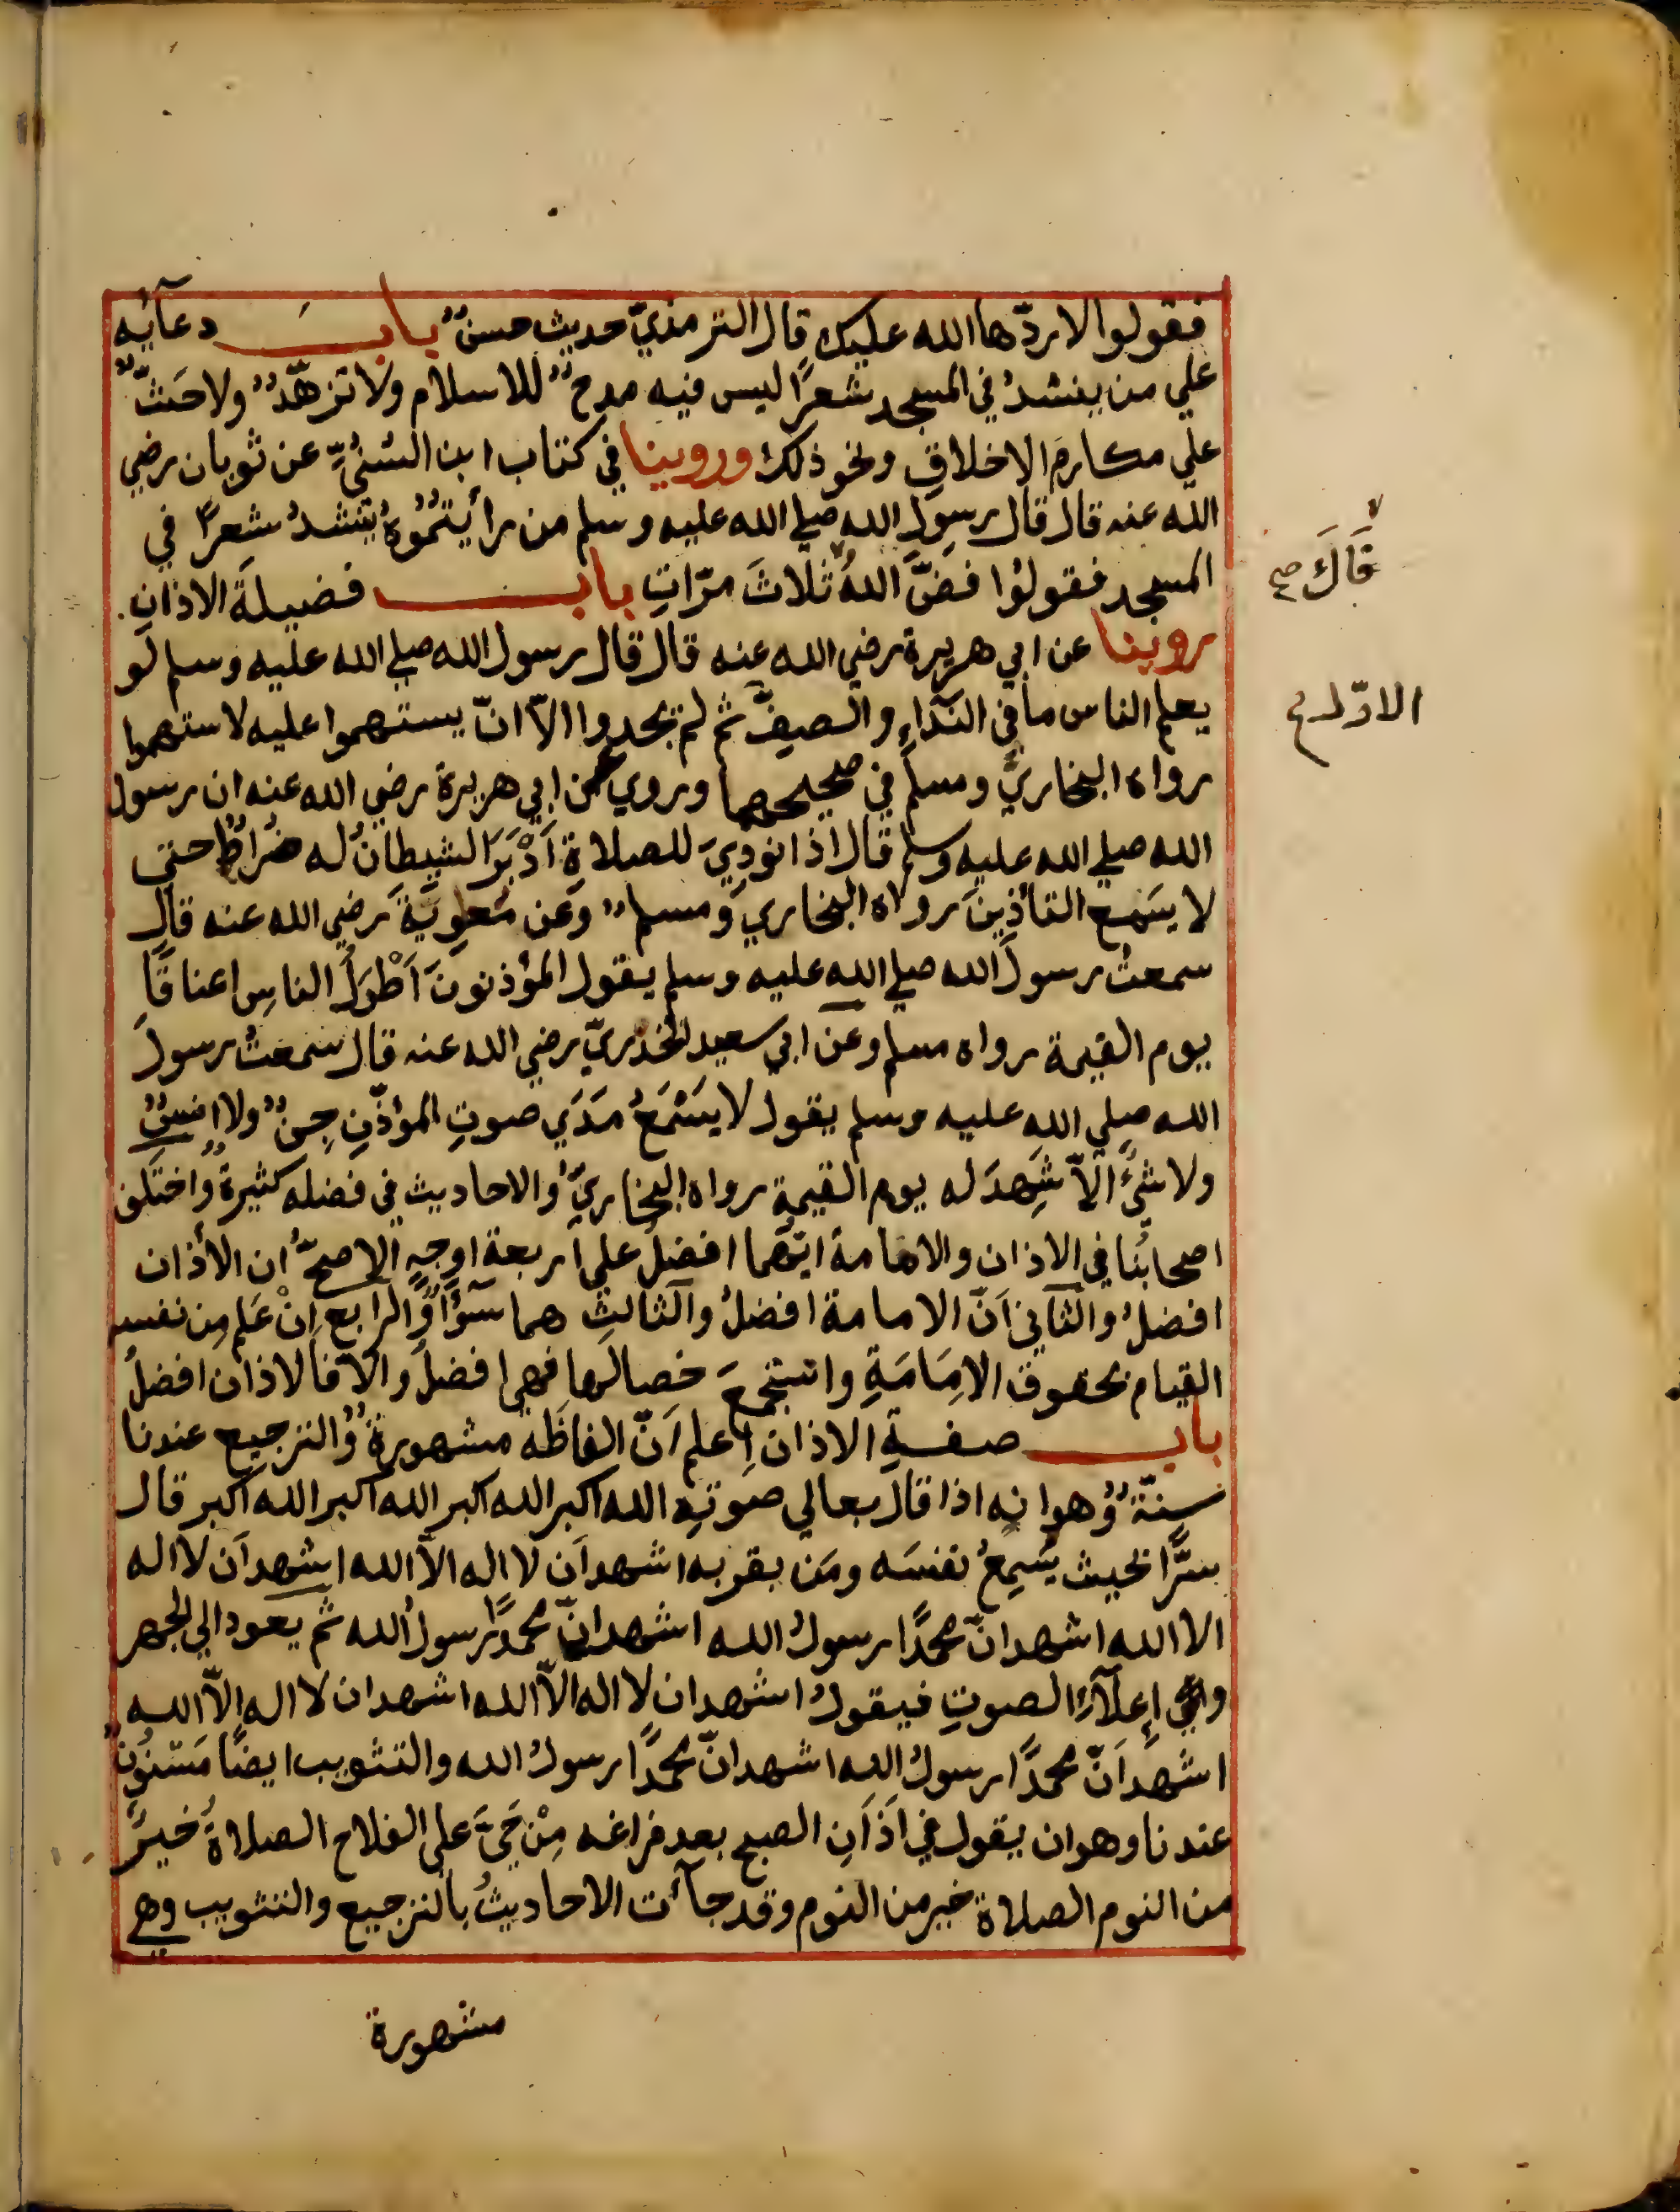 فقولوا لا ردّها الله عليك قال الترمذيّ حديث حسنٌ باب دعآئِه
علي من ينشدُ في المسجد شعرًا ليس فيه مدحٌ للاسلام ولا تزهّدٌ ولا حَثٌّ
علي مكارمِ الاخلاقِ ونحو ذلك وروينا في كتاب ابن السُنيِّ عن ثوبان رضي
الله عنه قال قال رسول الله صلي الله عليه وسلم من رأيتمُوُهُ ينشدُ شعرًا في
المسجد فقولوُا فضَّ اللهُ ثلاثَ مرّاتٍ باب فضيلةَ الاذانِ.
فَاكَ صح
روينا عن ابي هريرة رضي الله عنه قال قال رسول الله صلي الله عليه وسلم لو
يعلم الناس ما في النَدَاءِ والصفِّ ثم لم يجدوا الاّ انّ يستهموا عليه لاستهموا
الاوّل صح
رواه البخاريُّ ومسلم في صحيحهما وروي عن ابي هريرة رضي الله عنه ان رسول
الله صلي الله عليه وسلم قال اذا نودِيَ للصلاة اَدْبَرَ الشيطانُ له ضُراطٌ حتي
لا يسَمع التأذينَ رواه البخاري ومسلم وعَن مَعوِيَةَ رضي الله عنه قال
سمعتُ رسولَ الله صلي الله عليه وسلم يقول المؤذنونَ اَطْوَلُ الناسِ اعناقًا
يوم القيمة رواه مسلم وعن ابي سعيد الخدريّ رضي الله عنه قال سمعتُ رسولَ
الله صلي الله عليه وسلم يقول لا يَسْمَعُ مَدَي صوتِ المؤذّنِ جِنٌ ولا انسٌ
ولا شئٌ الاّ شَهِدَ له يوم القيمة رواه البخاريُّ والاحاديث في فضله كثيرةٌ واختلف
اصحابُنا في الاذان والامامة ايّهما افضلُ علي اربعة اوجهٍ الاصحُّ ان الأذان
افضلُ والثاني اَنّ الامامة افضلُ والثالث هما سَوَآءٌ والرابع اِنْ عَلم مِن نفسه
القيام بحقوق الامِامَةِ واستجمعَ خصالها فهي افضلُ والاّ فالاذان افضلُ
باب صفةِ الاذان اِعلم اَنّ الفاظَه مشهورةٌ والترجيع عندنا
سنّةٌ وهو انه اذا قال بعالي صوتِه الله اكبر الله اكبر الله اكبر الله اكبر قال
سرًّا بحيث يُسمِعُ نفسَه ومَن بقربه اشهد اَن لا اله الاّ الله اشهد اَن لا اله
الا الله اشهد انّ محمدًا رسولُ الله اشهد انّ محمدًا رسولُ الله ثم يعود الي الجهر
وفي إعلآءِ الصوتِ فيقولُ اشهد ان لا اله الاّ الله اشهد ان لا اله الاّ الله
اشهد اَنّ محمدًا رسولُ الله اشهد انّ محمدًا رسولُ الله والتثويب ايضًا مَسنوُنٌ
عندنا وهو ان يقول في اَذَانِ الصبح بعد فراغه مِنْ حَيَّ علي الفلاح الصلاةُ خيرٌ
من النوم الصلاة خير من النوم وقد جآءت الاحاديثُ بالترجيع والتثويب وهي
مشهورة